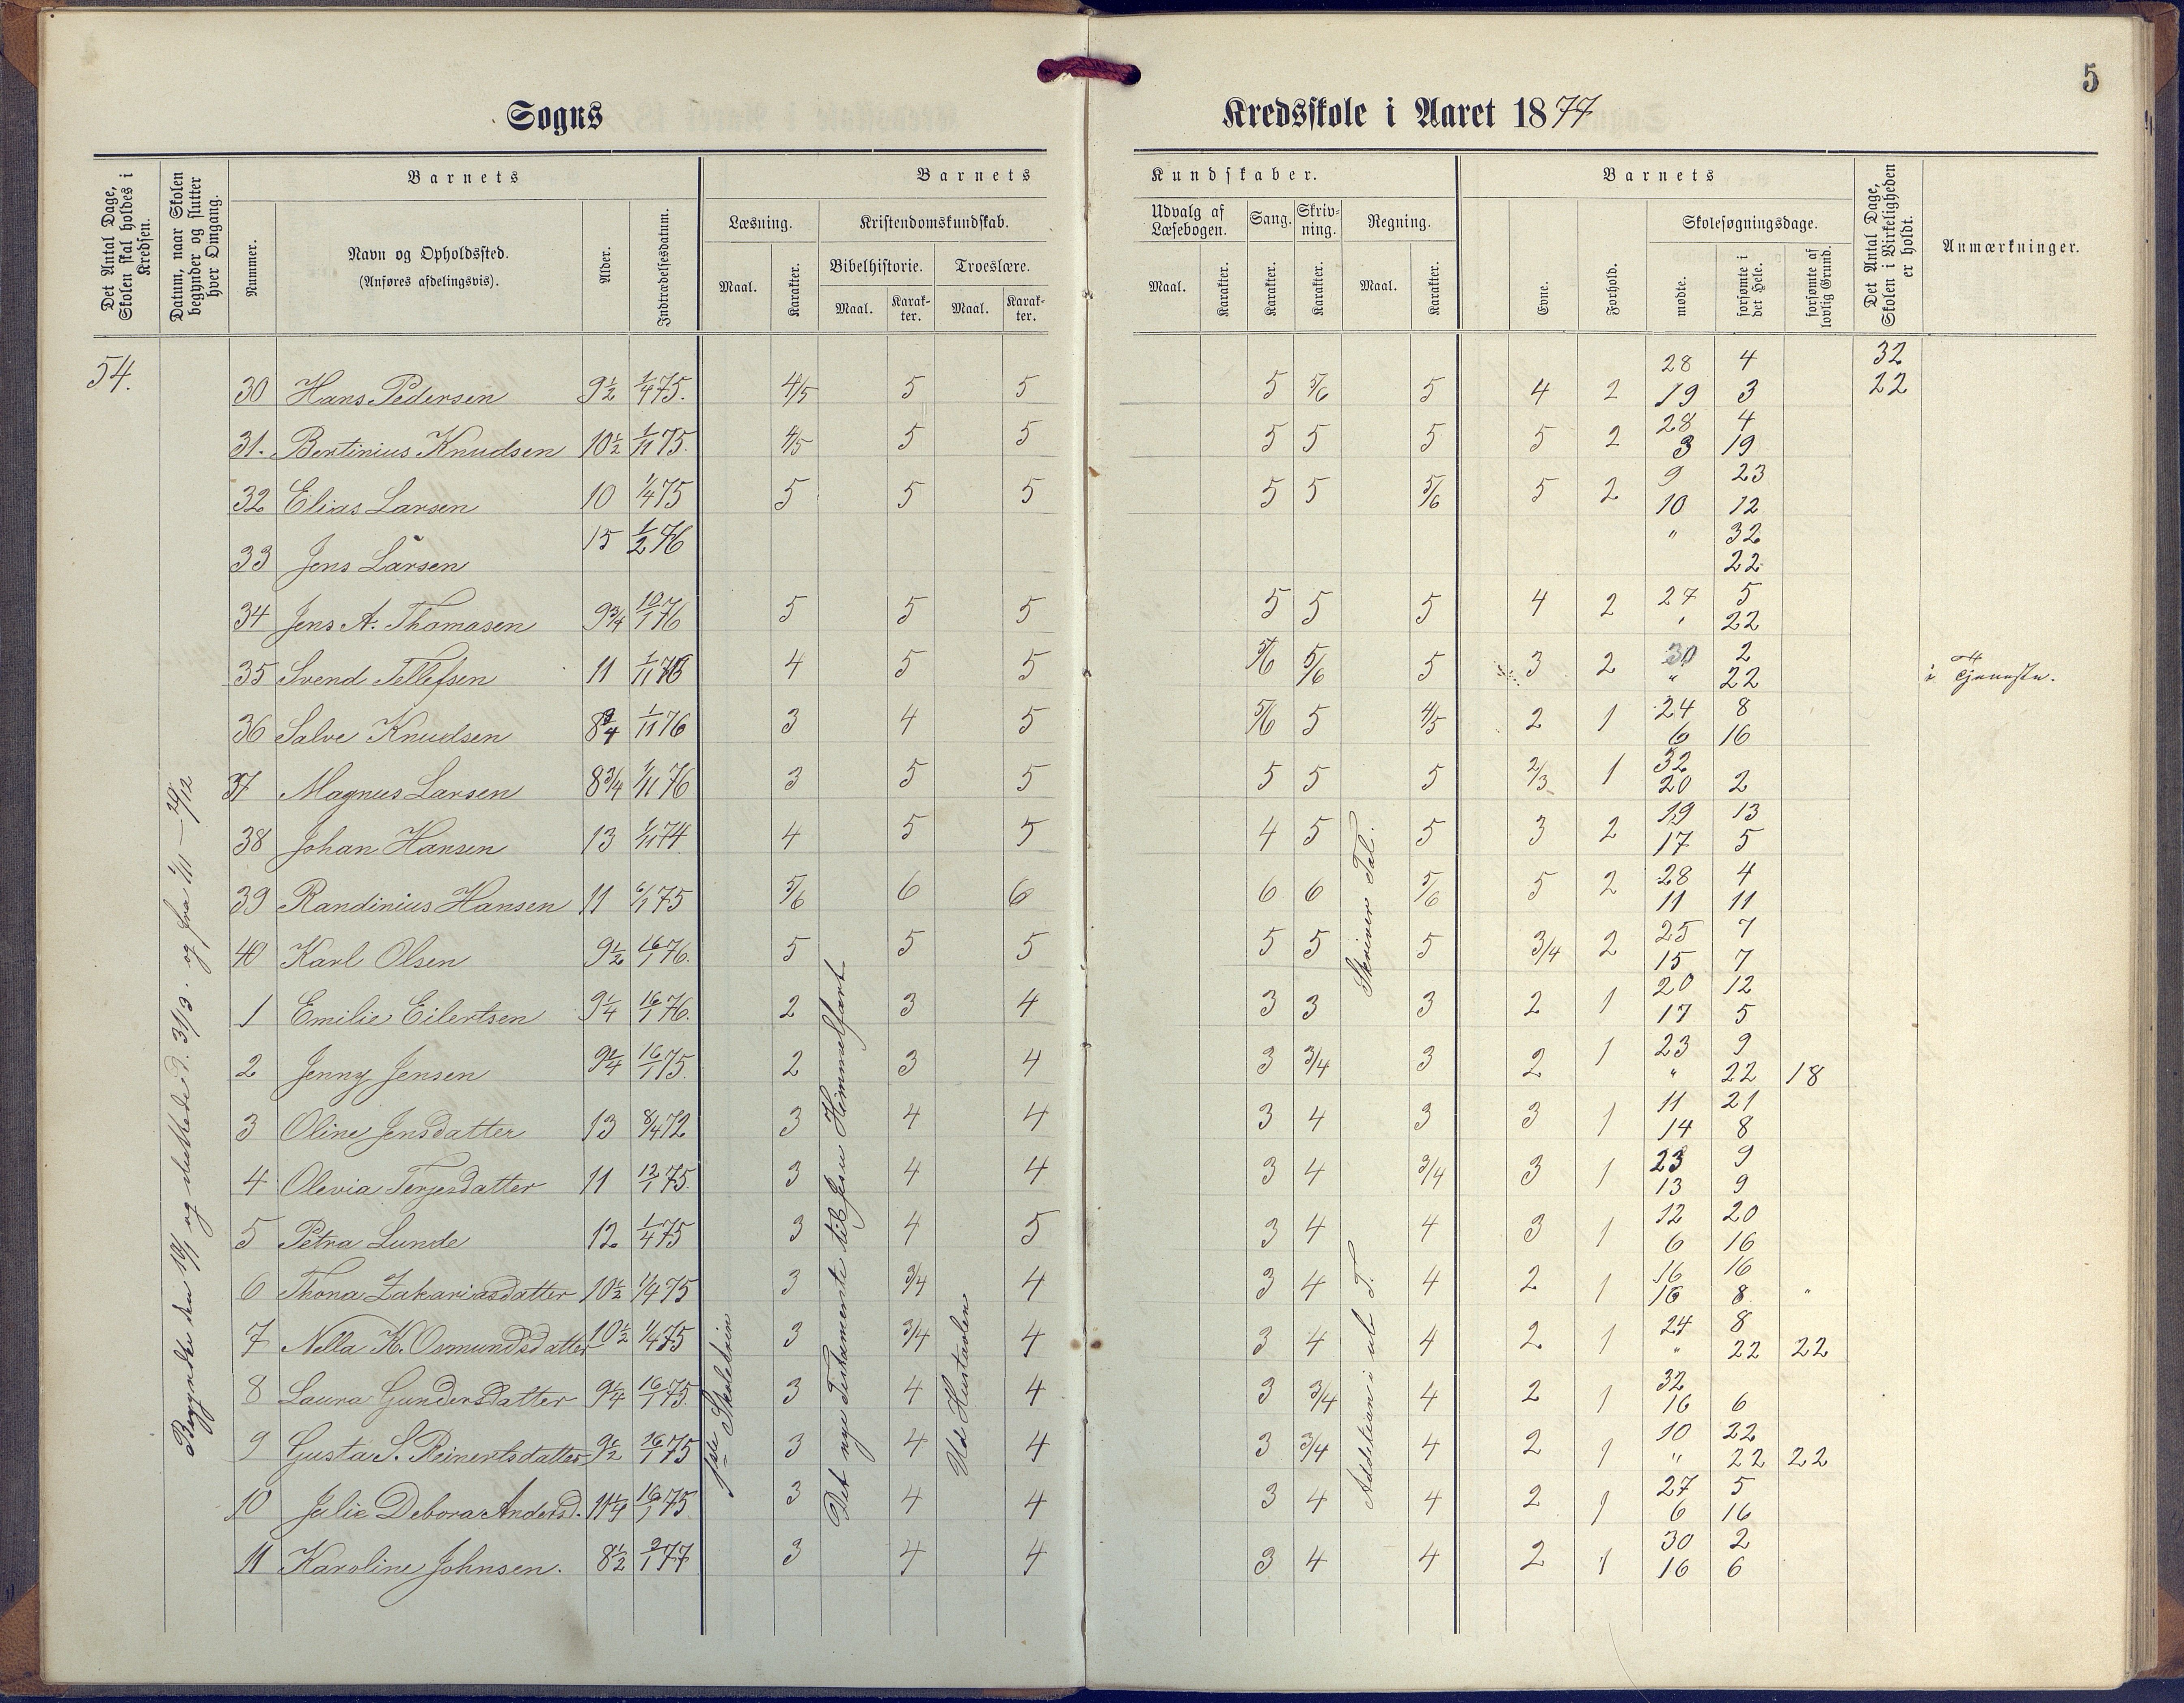 5
Sogns Kredsskole i Aaret 1877
Det Antal Dage, Skolen skal holdes i Kredsen.
Datum, naar Skolen begynder og slutter hver Omgang.
Barnets
Nummer.
Navn og Opholdssted.
(Anføres afdelingsvis).
Alder.
Indtrædelsesdatum.
Barnets Kundskaber.
Læsning.
Maal.
Karakter.
Kristendomskundskab.
Bibelhistorie.
Maal.
Karakter.
Troeslære.
Maal.
Karakter.
Udvalg af Læsebogen.
Maal.
Karakter.
Sang.
Karakter.
Skrivning.
Karakter.
Regning.
Maal.
Karakter.
Barnets
Evne.
Forhold.
Skolesøgningsdage.
mødte.
forsømte i det Hele.
forsømte af lovlig Grund.
Det Antal Dage, Skolen i Virkeligheden er holdt.
Anmærkninger.
54.
28 4 32
30 Hans Pedersen 9½ 1/4 75. 4/5 5 5 5 5/6 5 4 2 19 3 22
28 4
31. Bertinius Knudsen 10½ 1/11 75. 4/5 5 5 5 5 5 5 2 3 19
9 23
32 Elias Larsen 10 1/4 75 5 5 5 5 5 5/6 5 2 10 12
" 32
33 Jens Larsen 15 1/2 76 22
27 5
34 Jens A. Thomasen 9¾ 10/1 76 5 5 5 5 5 5 4 2 " 22
30 2
35 Svend Tellefsen 11 1/11 76 4 5 5 5/6 5/6 5 3 2 " 22 i Tjeneste.
24 8
36 Salve Knudsen 8¾ 1/11 76 3 4 5 5/6 5 4/5 2 1 6 16
32
37 Magnus Larsen 8¾ 1/11 76 3 5 5 5 5 5 2/3 1 20 2
19 13
38 Johan Hansen 13 1/11 74 4 5 5 4 5 5 3 2 17 5
28 4
39 Randinius Hansen 11 6/1 75 5/6 6 6 6 6 5/6 5 2 11 11
25 7
40 Karl Olsen 9½ 16/1 76. 5 5 5 5 5 5 3/4 2 15 7
20 12
1 Emilie Eilertsen 9¼ 16/1 76. 2 3 4 3 3 3 2 1 17 5
23 9
2 Jenny Jensen 9¼ 16/1 75. 2 3 4 3 3/4 3 2 1 " 22 18
11 21
3 Oline Jensdatter 13 8/4 72 3 4 4 3 4 3 3 1 14 8
23 9
4 Olevia Terjesdatter 11 12/1 75. 3 4 4 3 4 3/4 3 1 13 9
12 20
5 Petra Lunde 12. 1/4 75 3 4 5 3 4 4 3 1 6 16
16 16
6 Thona Zakariasdatter 10½ 1/4 75 3 3/4 4 3 4 4 2 1 16 8 "
24 8
7 Nella K. Osmundsdatter 10½ 1/4 75 3 3/4 4 3 4 4 2 1 " 22 22
32
8 Laura Gundersdatter 9¼ 16/1 75. 3 4 4 3 3/4 4 2 1 16 6
10 22
9 Gusta S. Reinertsdatter 9½ 16/1 75 3 4 4 3 3/4 4 2 1 " 22 22
27 5
10 Julie Debora Andersd. 11¼ 16/1 75 3 4 4 3 4 4 2 1 6 16
30 2
11 Karoline Johnsen. 8½ 2/1 77 3 4 4 3 4 4 2 1 16 6
Begyndte den 10/1 og sluttede d. 31/3. og fra 1/11 – 29/12
1ste Skoletrin
Det nye Testamente til Jesu Himmelfart
Ud Hustavlen
Skriver Tal.
Addetian i ub T.